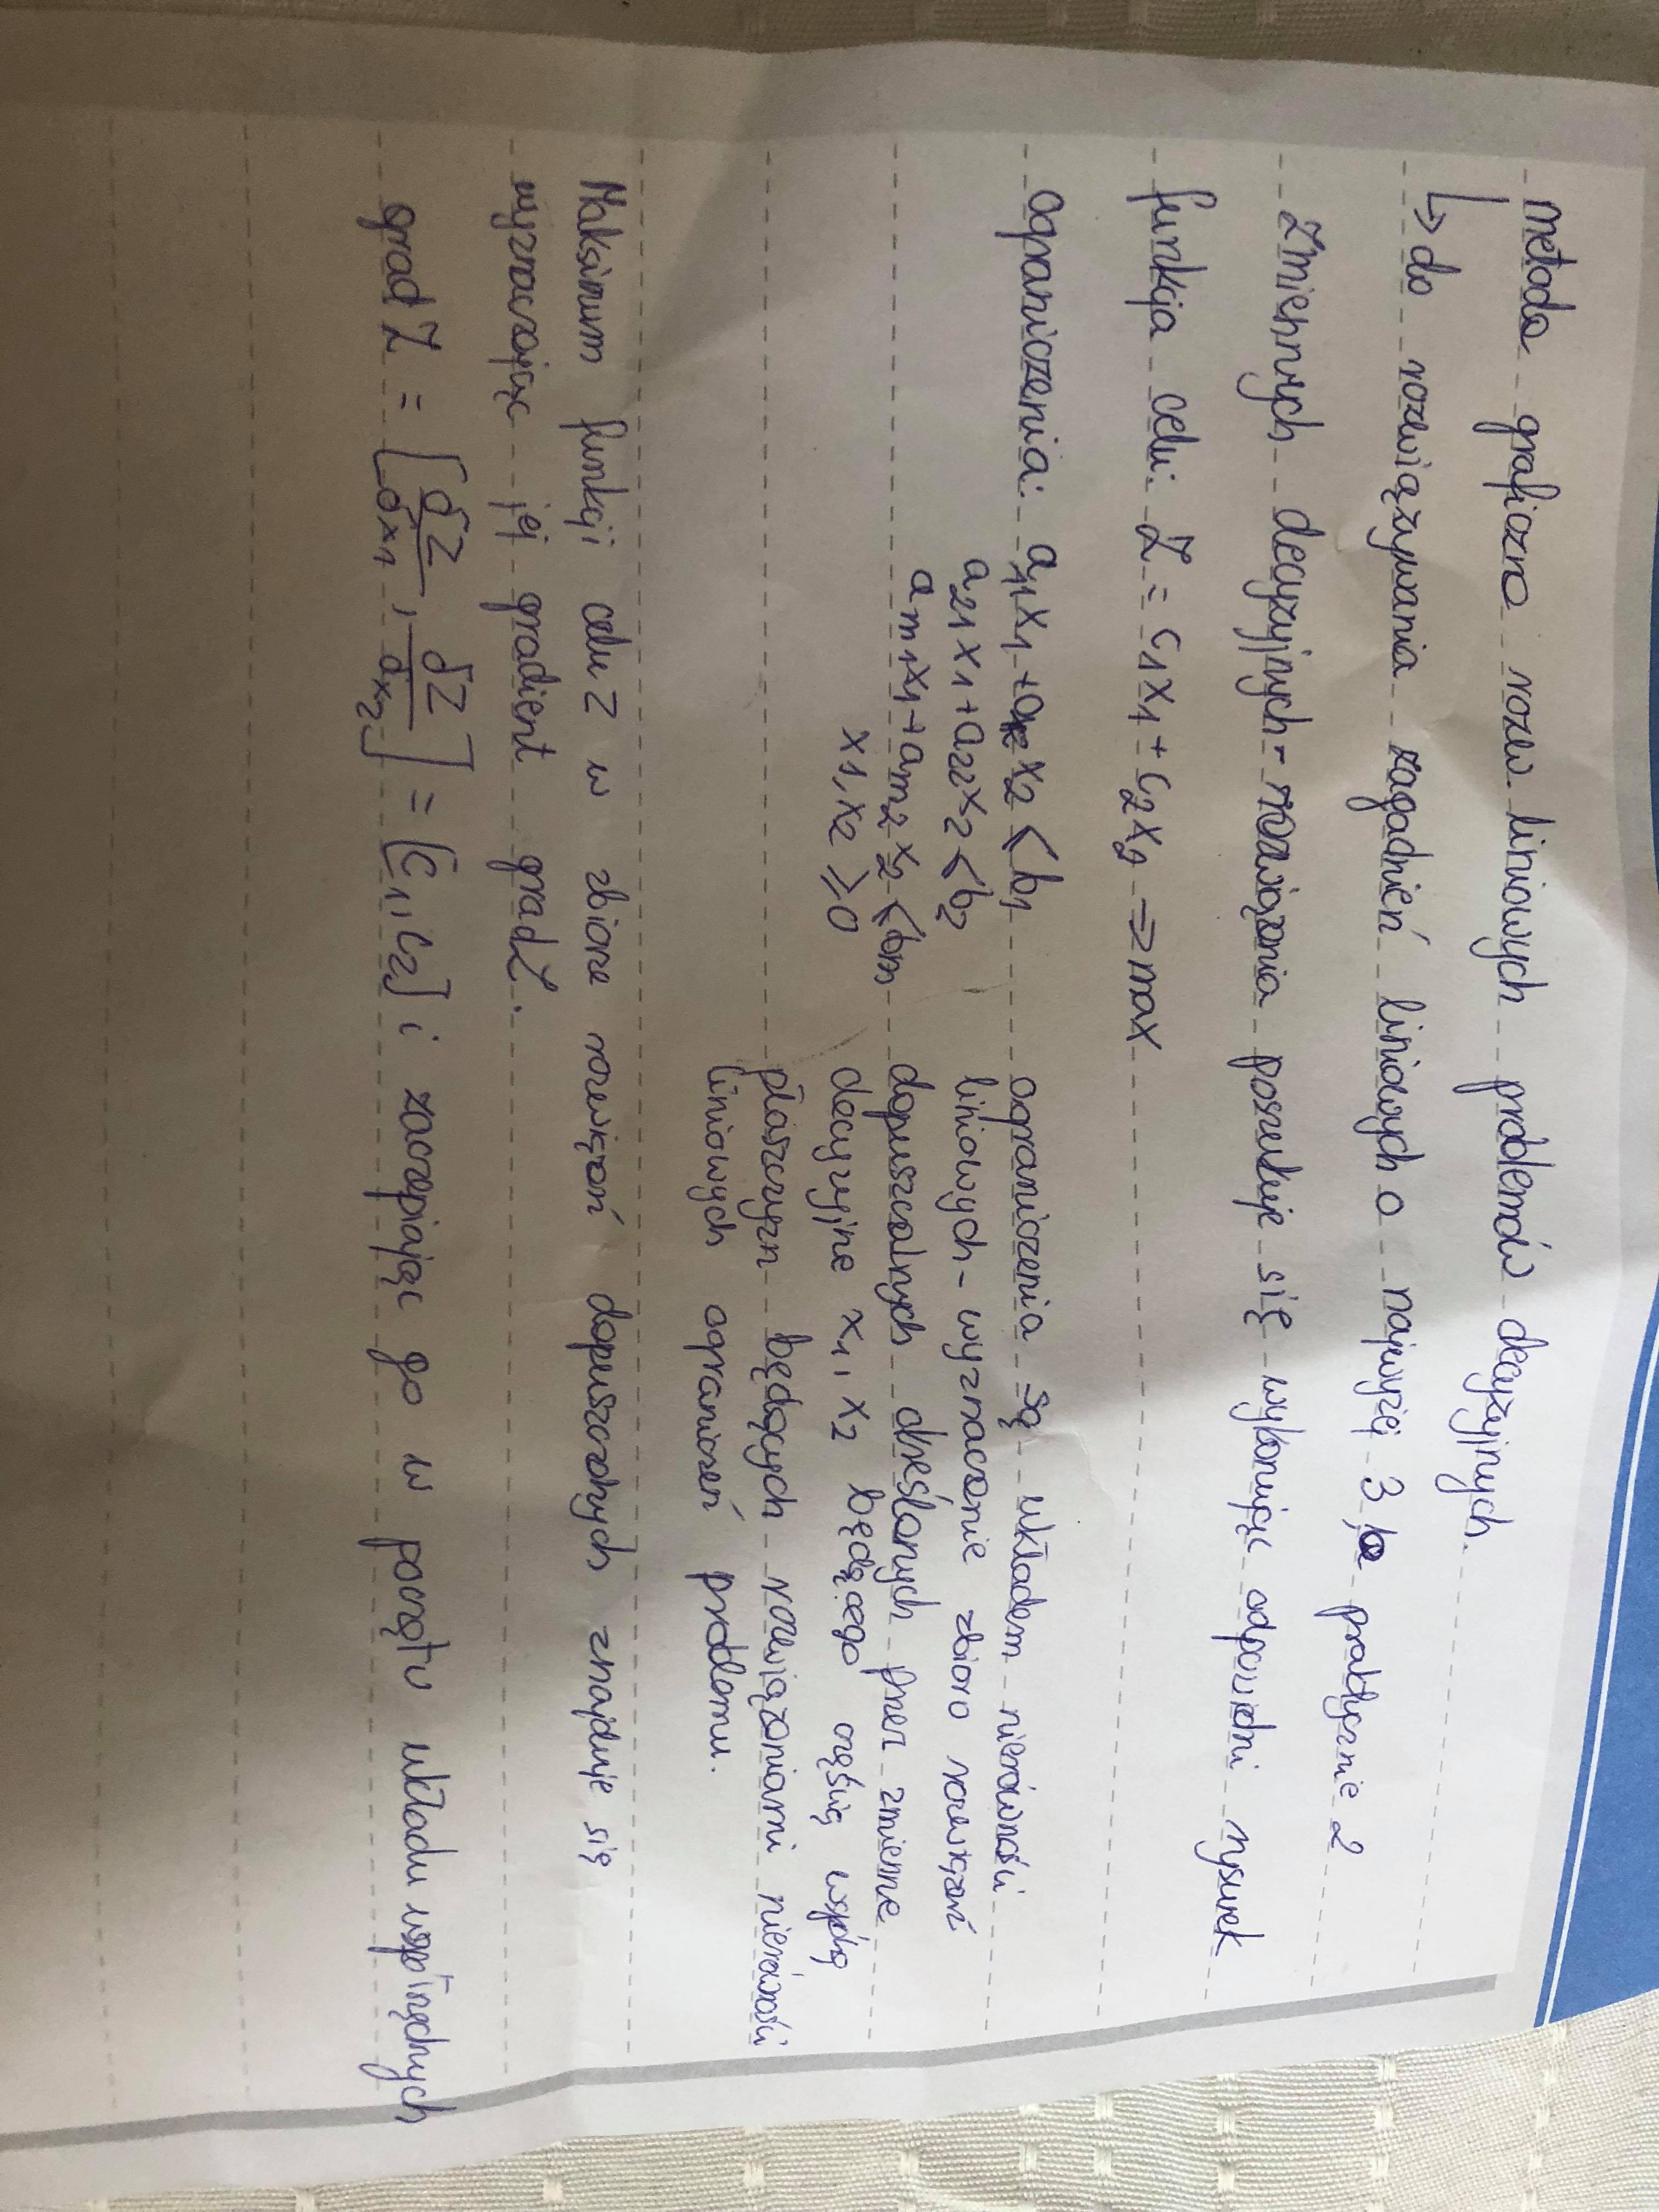 metoda graficzna rozw. liniowych problemów decyzyjnych.
↳ do rozwiązywania zagadnień liniowych o najwyżej 3, a praktycznie 2
zmiennych decyzyjnych - rozwiązania poszukuje się wykonując odpowiedni rysunek
funkcja celu: Z = c₁x₁ + c₂x₂ ⇒ max
ograniczenia: a₁₁x₁ + a₁₂x₂ ≤ b₁
a₂₁x₁ + a₂₂x₂ ≤ b₂
aₘ₁x₁ + aₘ₂x₂ ≤ bₘ
x₁, x₂ ≥ 0
ograniczenia są układem nierówności
liniowych - wyznaczanie zbioru rozwiązań
dopuszcalnych określonych przez zmienne
decyzyjne x₁, x₂ będącego częścią wspólną
płaszczyzn będących rozwiązaniami nierówności
liniowych ograniczeń problemu.
Maksimum funkcji celu Z w zbiorze rozwiązań dopuszczalnych znajduje się
wyznaczając jej gradient grad Z.
grad Z = [δZ/δx₁, δZ/δx₂] = [c₁, c₂] i zaczepiając go w początu układu współrzędnych